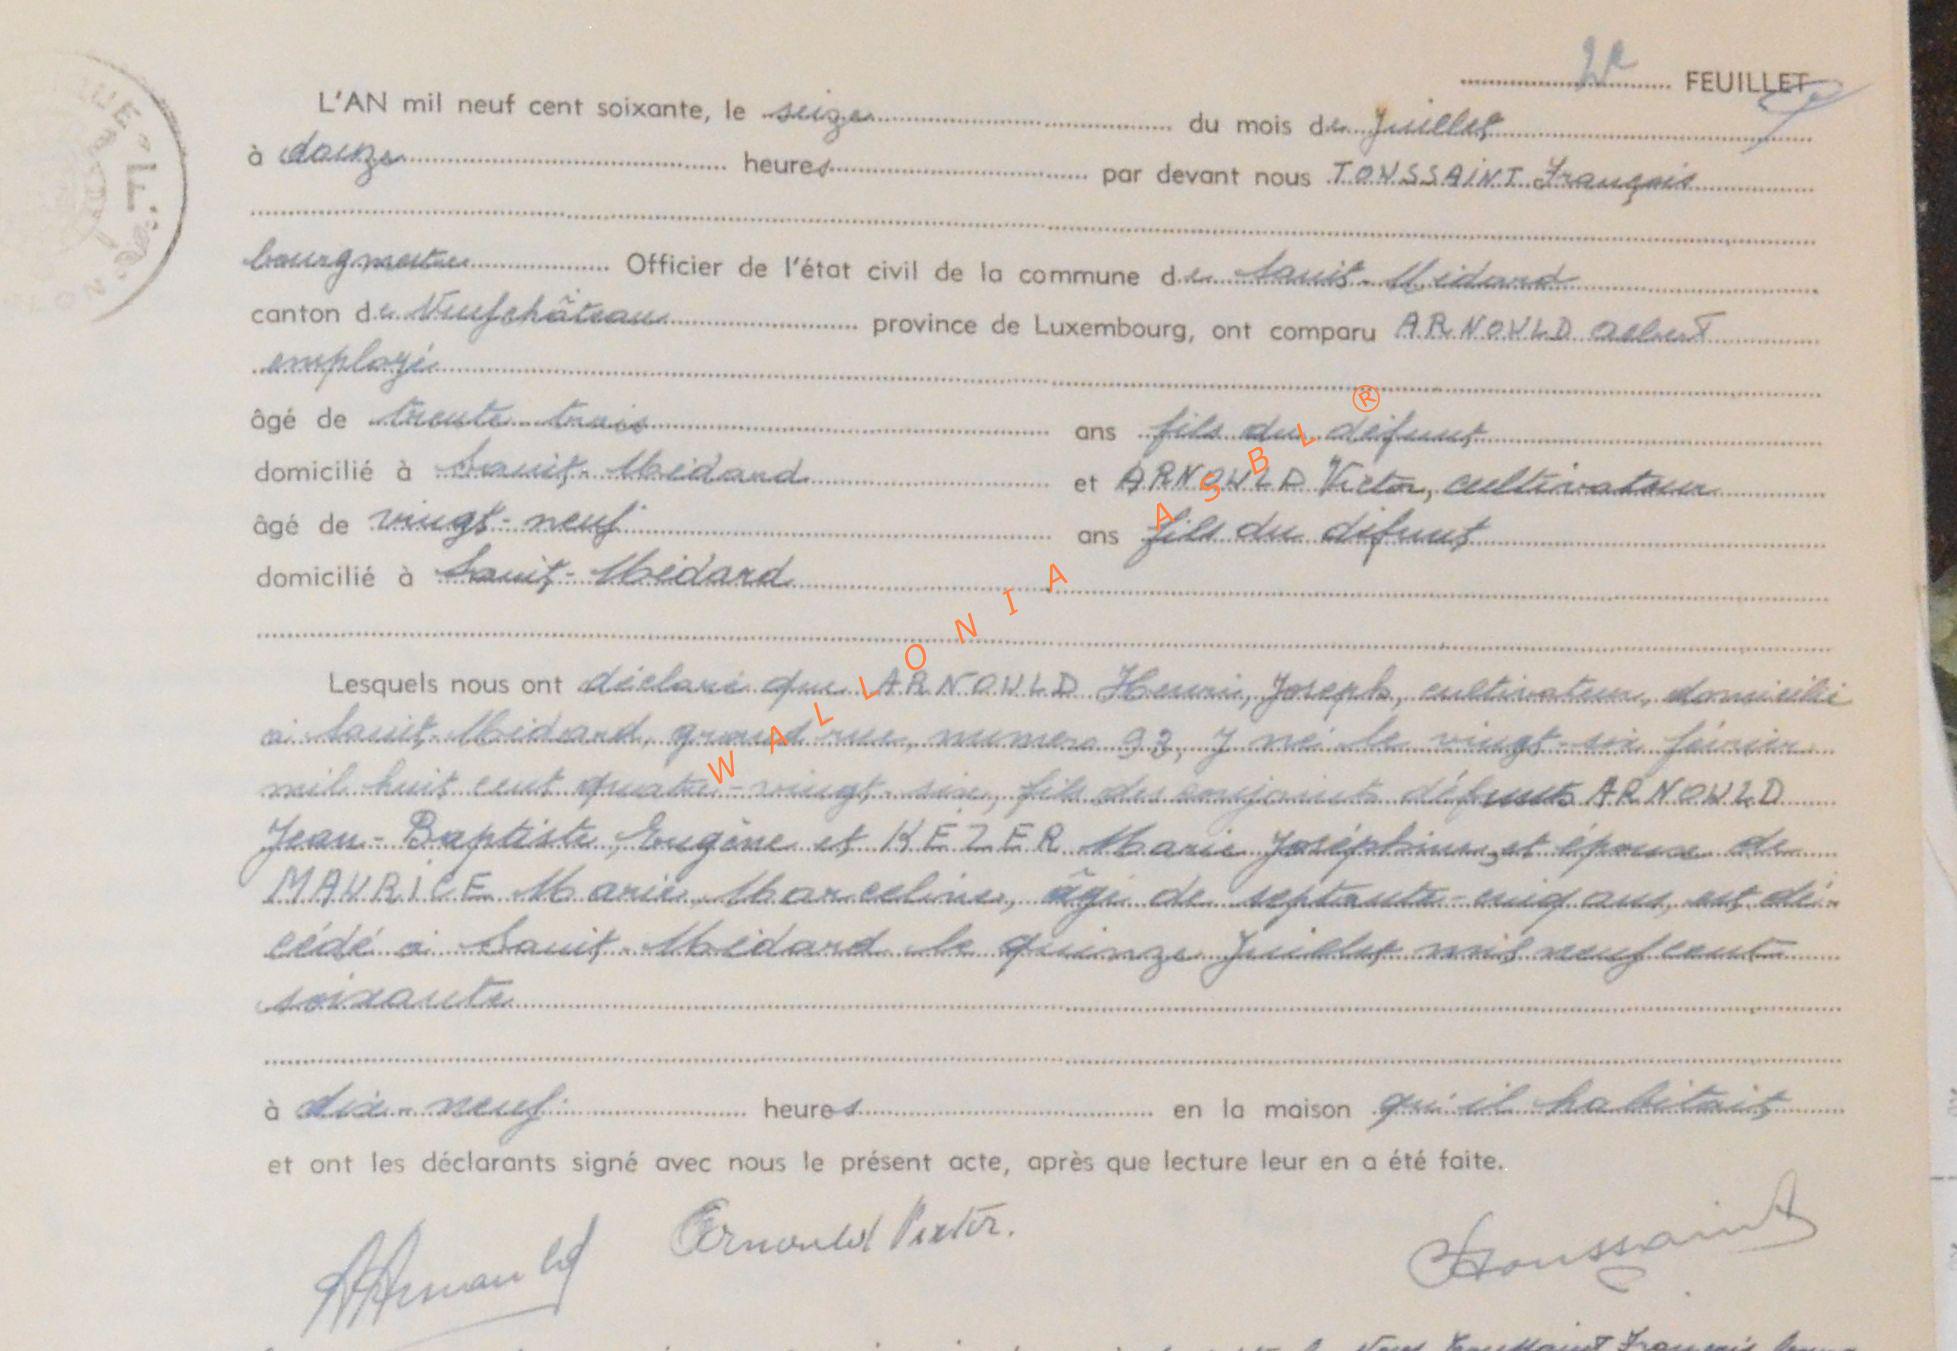 2e FEUILLET
L'AN mil neuf cent soixante, le seize du mois de Juillet
à douze heures par devant nous TOUSSAINT François
bourgmestre Officier de l'état civil de la commune de Saint-Médard
canton de Neufchâteau province de Luxembourg, ont comparu ARNOULD Albert
employé
âgé de trente trois ans fils du défunt
domicilié à Saint-Médard et ARNOULD Victor, cultivateur
âgé de vingt-neuf ans fils du défunt
domicilié à Saint-Médard
Lesquels nous ont déclaré que ARNOULD Henri, Joseph, cultivateur, domicilié
à Saint-Médard, grand rue, numéro 93, y né le vingt-six février
mil huit cent quatre-vingt-six, fils des conjoints défunts ARNOULD
Jean-Baptiste, Eugène et KÉZER Marie Joséphine, et époux de
MAURICE Marie, Marceline, âgé de septante-cinq ans, est dé-
cédé à Saint-Médard le quinze Juillet mil neuf cent
soixante
à dix-neuf heures en la maison qu'il habitait
et ont les déclarants signé avec nous le présent acte, après que lecture leur en a été faite.
AArnould Arnould Victor. FToussaint
WALLONIA ASBL ®